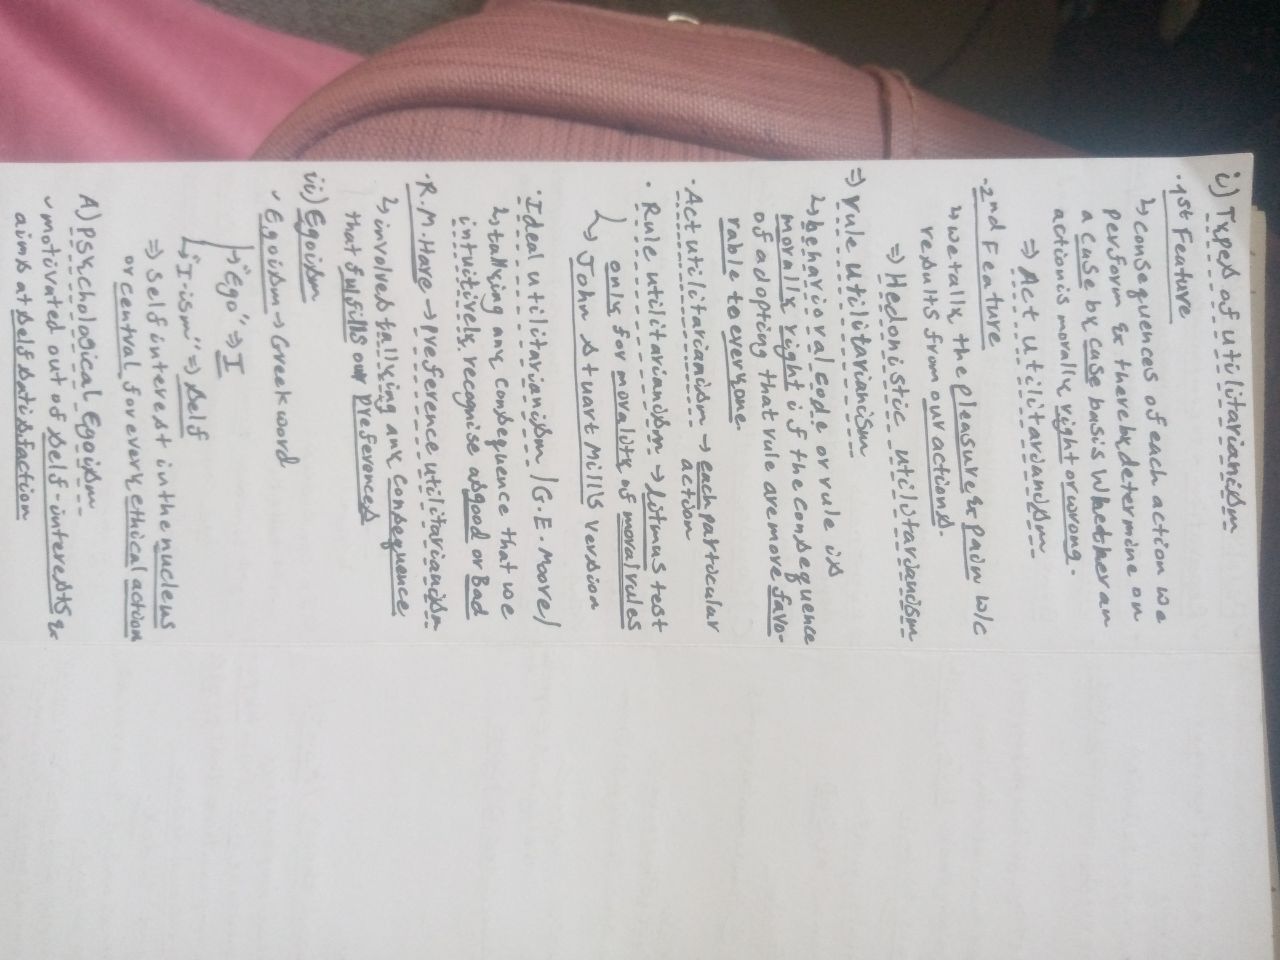 i) Types of utilitarianism
· 1st Feature
↳ consequences of each action we
perform & thereby determine on
a case by case basis whether an
action is morally right or wrong.
⇒ Act utilitarianism
· 2nd Feature
↳ we tally the pleasure & pain w/c
results from our actions.
⇒ Hedonistic utilitarianism
⇒ rule utilitarianism
↳ behavioral code or rule is
morally right if the consequence
of adopting that rule are more favo-
rable to everyone.
· Act utilitarianism → each particular
action
· Rule utilitarianism → litmus test
only for morality of moral rules
↳ John stuart Mill's version
· Ideal utilitarianism / G.E. Moore/
↳ tallying any consequence that we
intuitively recognise as good or Bad
· R.M. Hare → preference utilitarianism
↳ involves tallying any consequence
that fulfills our preferences
iii) Egoism
✓ Egoism → Greek word
↳ "Ego" ⇒ I
↳ "I-ism" ⇒ self
⇒ Self interest in the nucleus
or central for every ethical action
A) Psychological Egoism
✓ motivated out of self-interests &
aims at self satisfaction